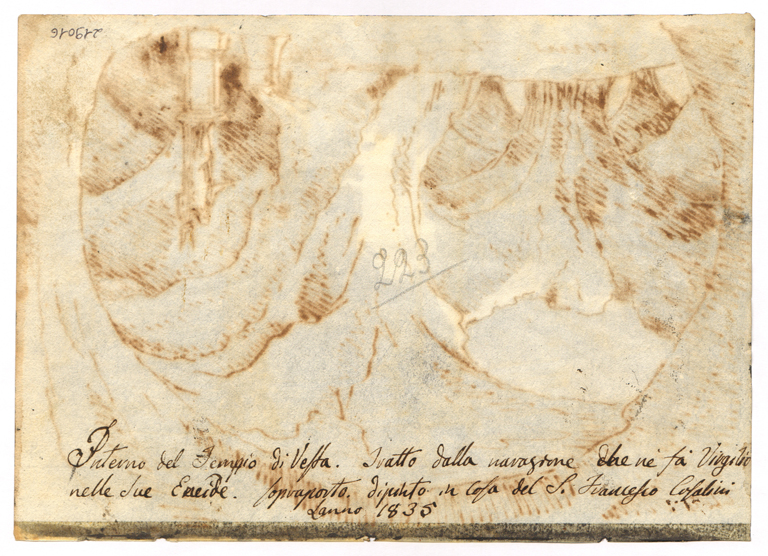 219016
223
Interno del Tempio di Vesta. Tratto dalla narazione che ne fa Virgilio
nelle sue Eneide. Sopraporto dipinto in Casa del S. Francesco
L'anno 1835